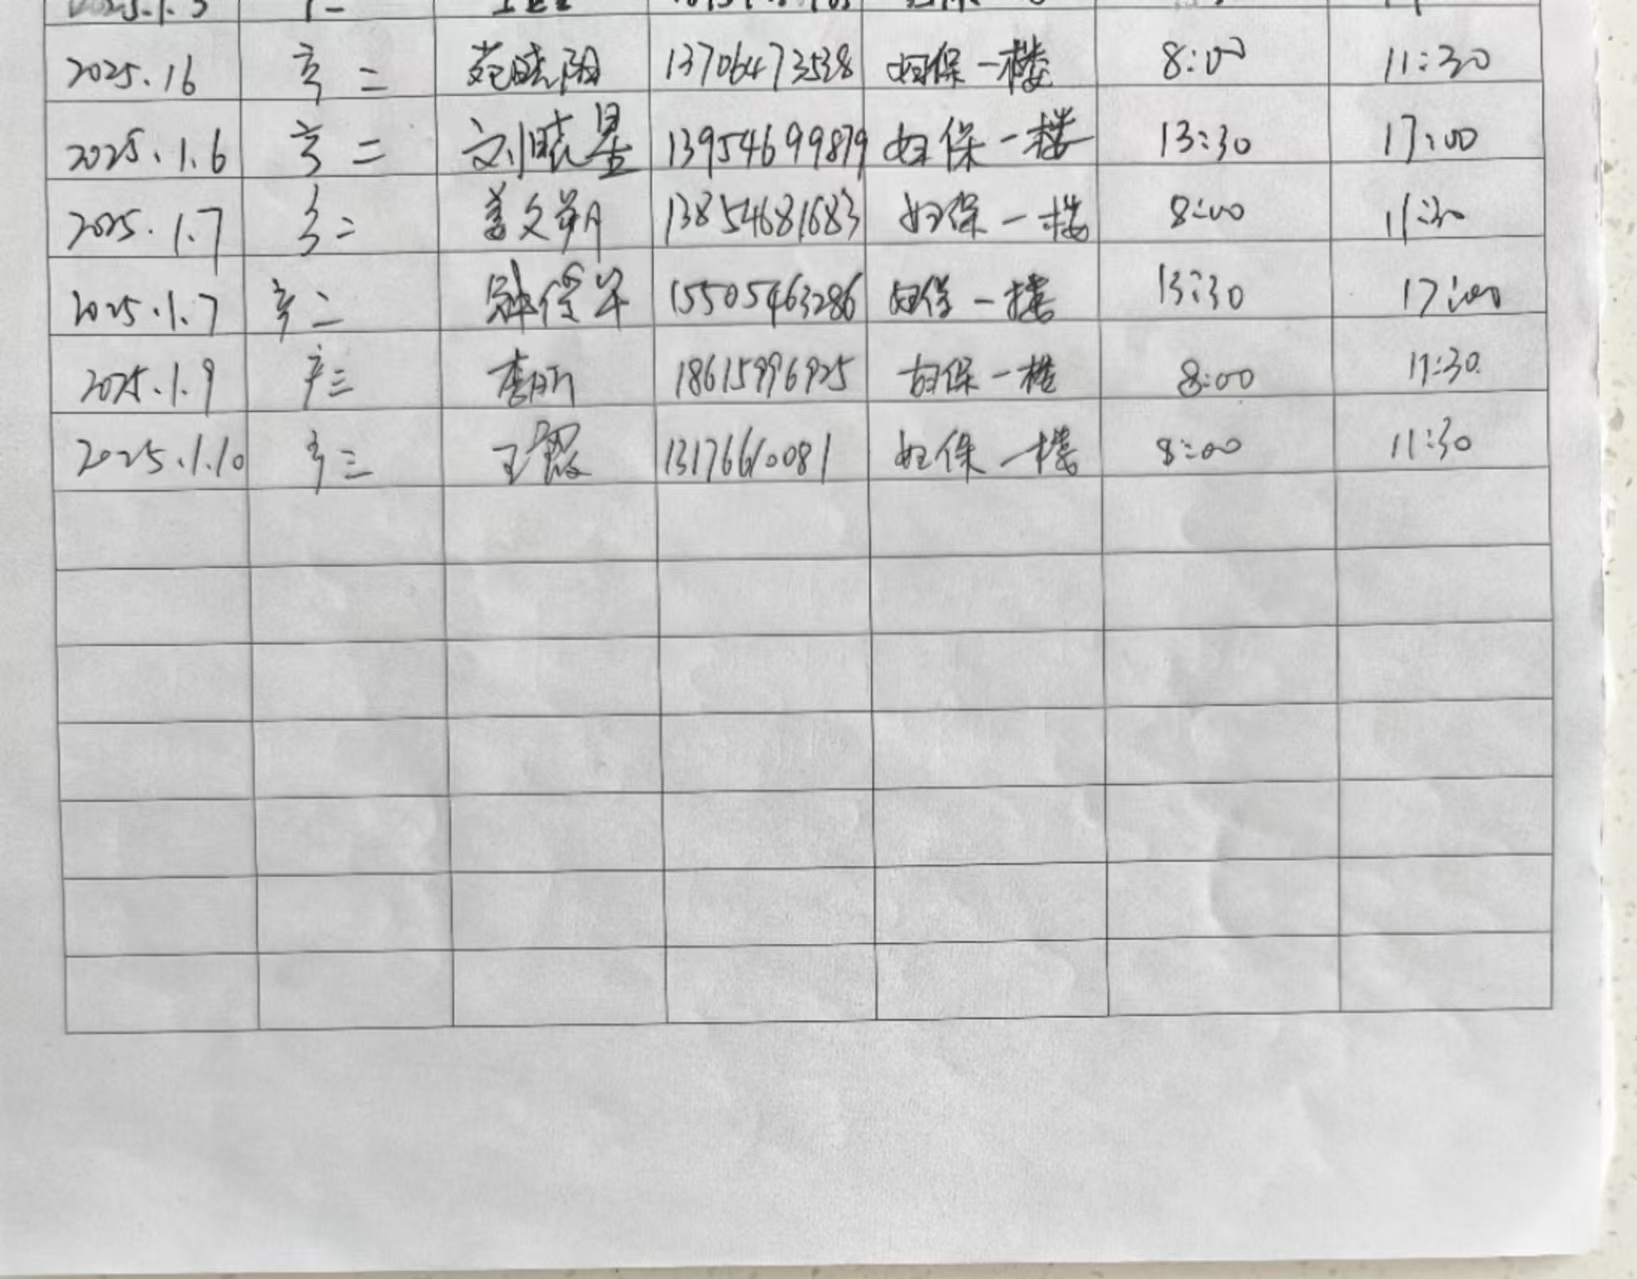 2025.16 产二 苑晓阳 13706473538 妇保一楼 8:00 11:30
2025.1.6 产二 刘晓星 13954699879 妇保一楼 13:30 17:00
2025.1.7 产二 姜文朔 13854681683 妇保一楼 8:00 11:30
2025.1.7 产二 15505463286 妇保一楼 13:30 17:00
2025.1.9 产三 18615996925 妇保一楼 8:00 11:30
2025.1.10 产三 王霞 13176610081 妇保一楼 8:00 11:30